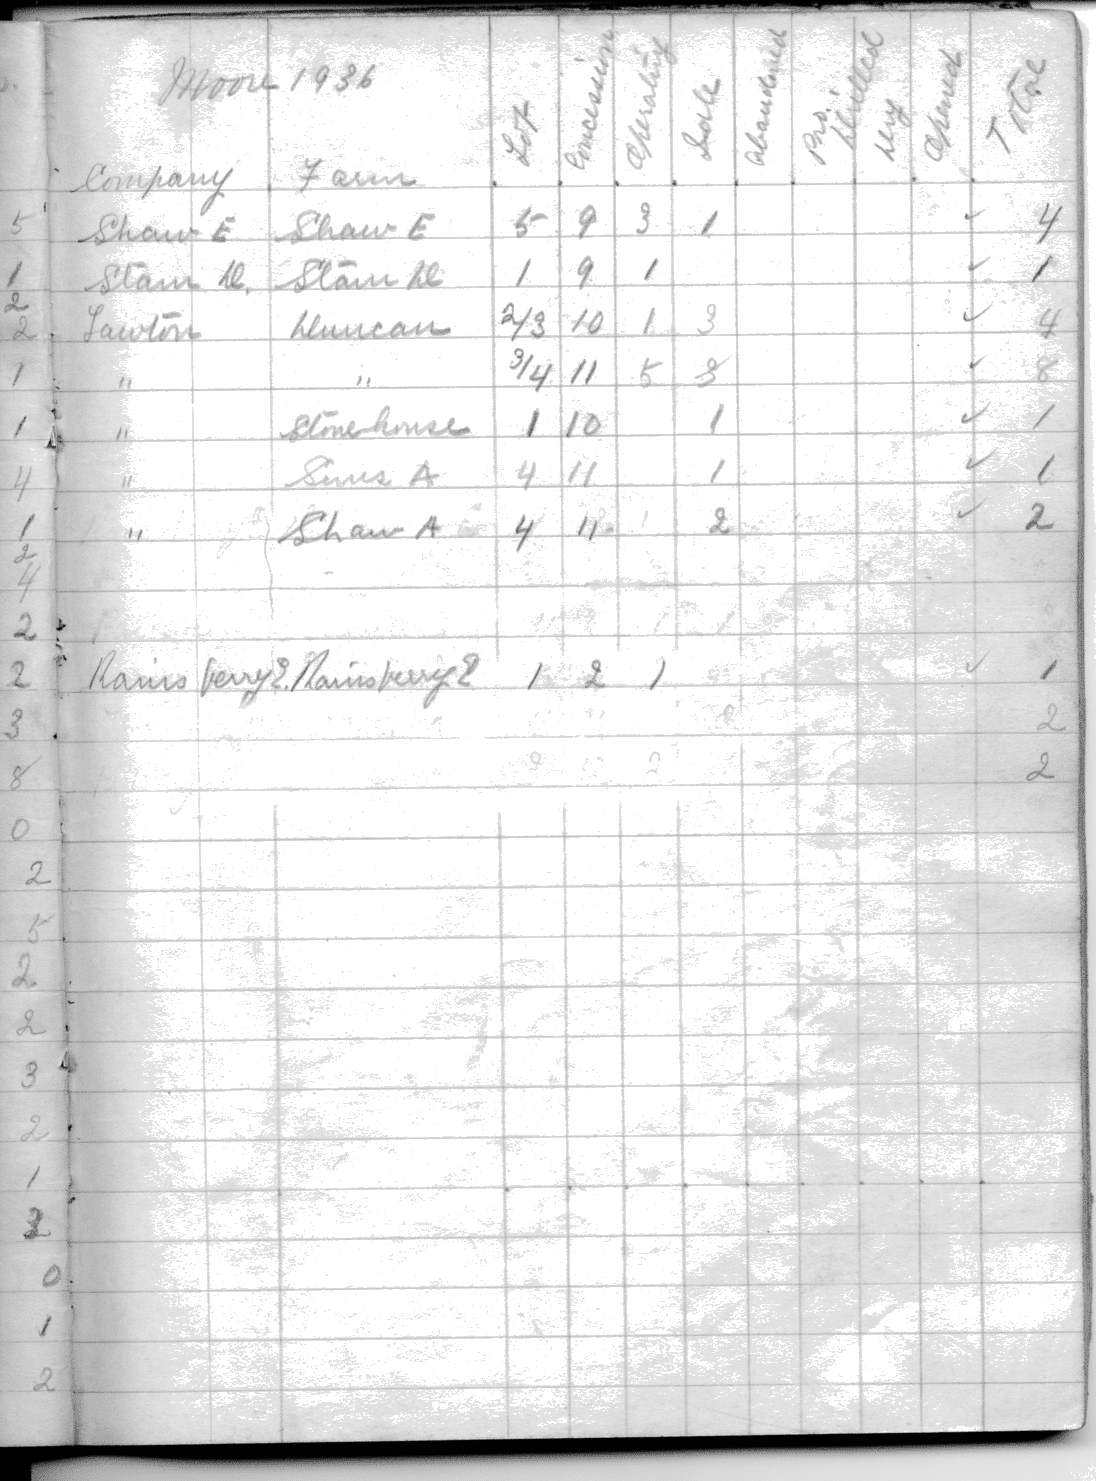 Moore 1936
Company Farm Lot Concession Operating Idle Abandoned Pro. Drilled Dry Opened Total
5 Shaw E Shaw E 5 9 3 1 ✓ 4
1 Stam D. Stam D 1 9 1 ✓ 1
2
2 Lawton Duncan 2/3 10 1 3 ✓ 4
1 " " 3/4 11 5 3 ✓ 8
1 " Stonehouse 1 10 1 ✓ 1
4 " Sims A 4 11 1 ✓ 1
1 " Shaw A 4 11 2 ✓ 2
2
4
2
2 Rainsberry E. Rainsberry E 1 2 1 ✓ 1
3 2
8 2
0
2
5
2
2
3
2
1
0
1
2